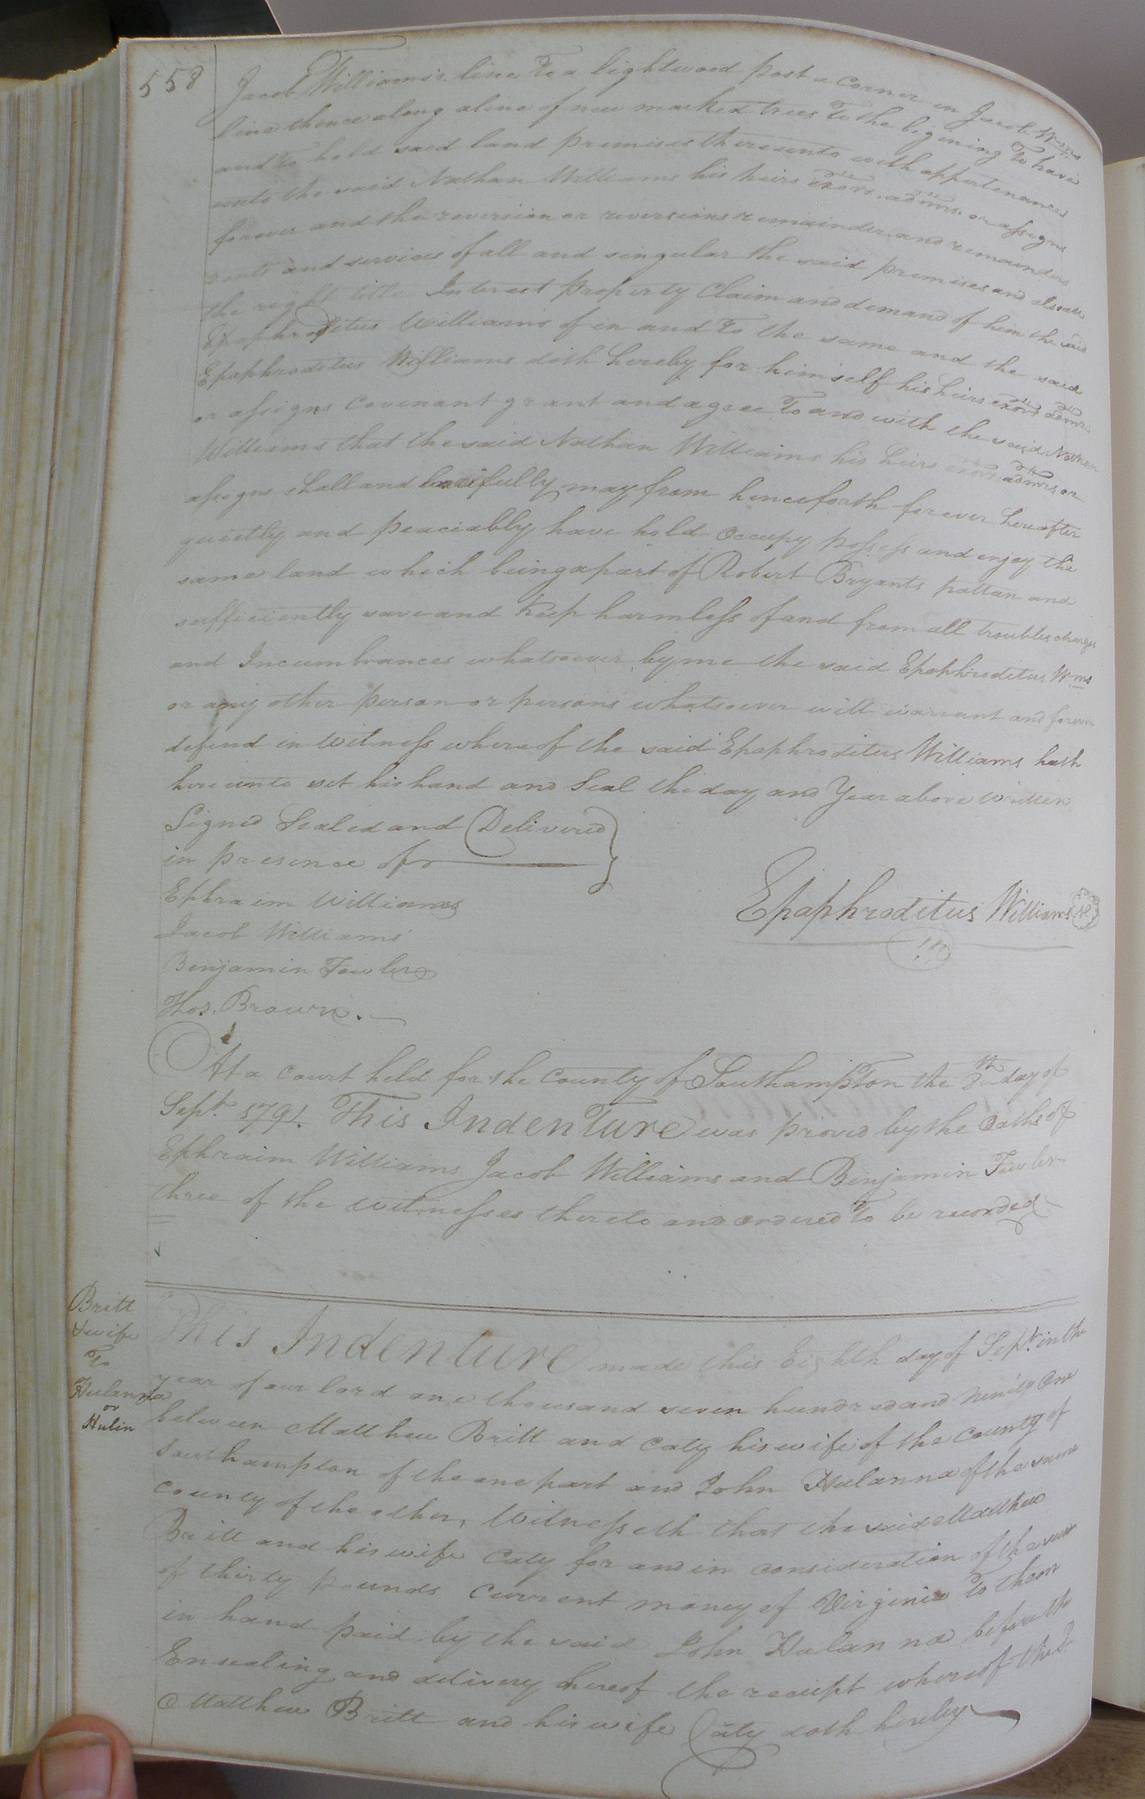 558
Jacob Williams's line To a lightwood post a corner in Jacob Wms
line thence along a line of new marked trees To the begining To have
and to hold said land premises thereunto with appertenances
unto the said Nathan Williams his heirs exors. adms. or assigns
forever and the reversion or reversions remainder and remainders
rents and services of all and singular the said premises and also all
the right title Interest property Claim and demand of him the said
Epaphroditus Williams of in and To the same and the said
Epaphroditus Williams doth hereby for himself his heirs exors adms
or assigns Covenant grant and agree To and with the said Nathan
Williams that the said Nathan Williams his heirs exors adms or
assigns shall and lawfully may from henceforth forever hereafter
quietly and peaciably have hold occupy possess and enjoy the
same land which being a part of Robert Bryants pattan and
sufficiently save and keep harmless of and from all troubles charges
and Incumbrances whatsoever by me the said Epaphroditus Wms
or any other person or persons whatsoever will warrant and forever
defend in witness whereof the said Epaphroditus Williams hath
hereunto set his hand and Seal the day and Year above written
Signed Sealed and Delivered
in presence of
Ephraim Williams
Epaphroditus Williams
Jacob Williams
Benjamin Fowler
Thos. Brown.
At a court held for the County of Southampton the day of
Sept. 1791. This Indenture was proved by the Oaths of
Ephraim Williams Jacob Williams and Benjamin Fowler
three of the witnesses thereto and ordered To be recorded
Britt
& wife
To
Hulanna
or
Hulin
This Indenture made this Eighth day of Sept. in the
year of our lord one thousand seven hundred and Ninety One
between Matthew Britt and Caty his wife of the County of
Southampton of the one part and John Hulanna of the same
County of the other, Witnesseth that the said Matthew
Britt and his wife Caty for and in consideration of the sum
of thirty pounds Current money of Virginia To them
in hand paid by the said John Hulanna before the
Ensealing and delivery hereof the receipt whereof the Sd.
Matthew Britt and his wife Caty doth hereby